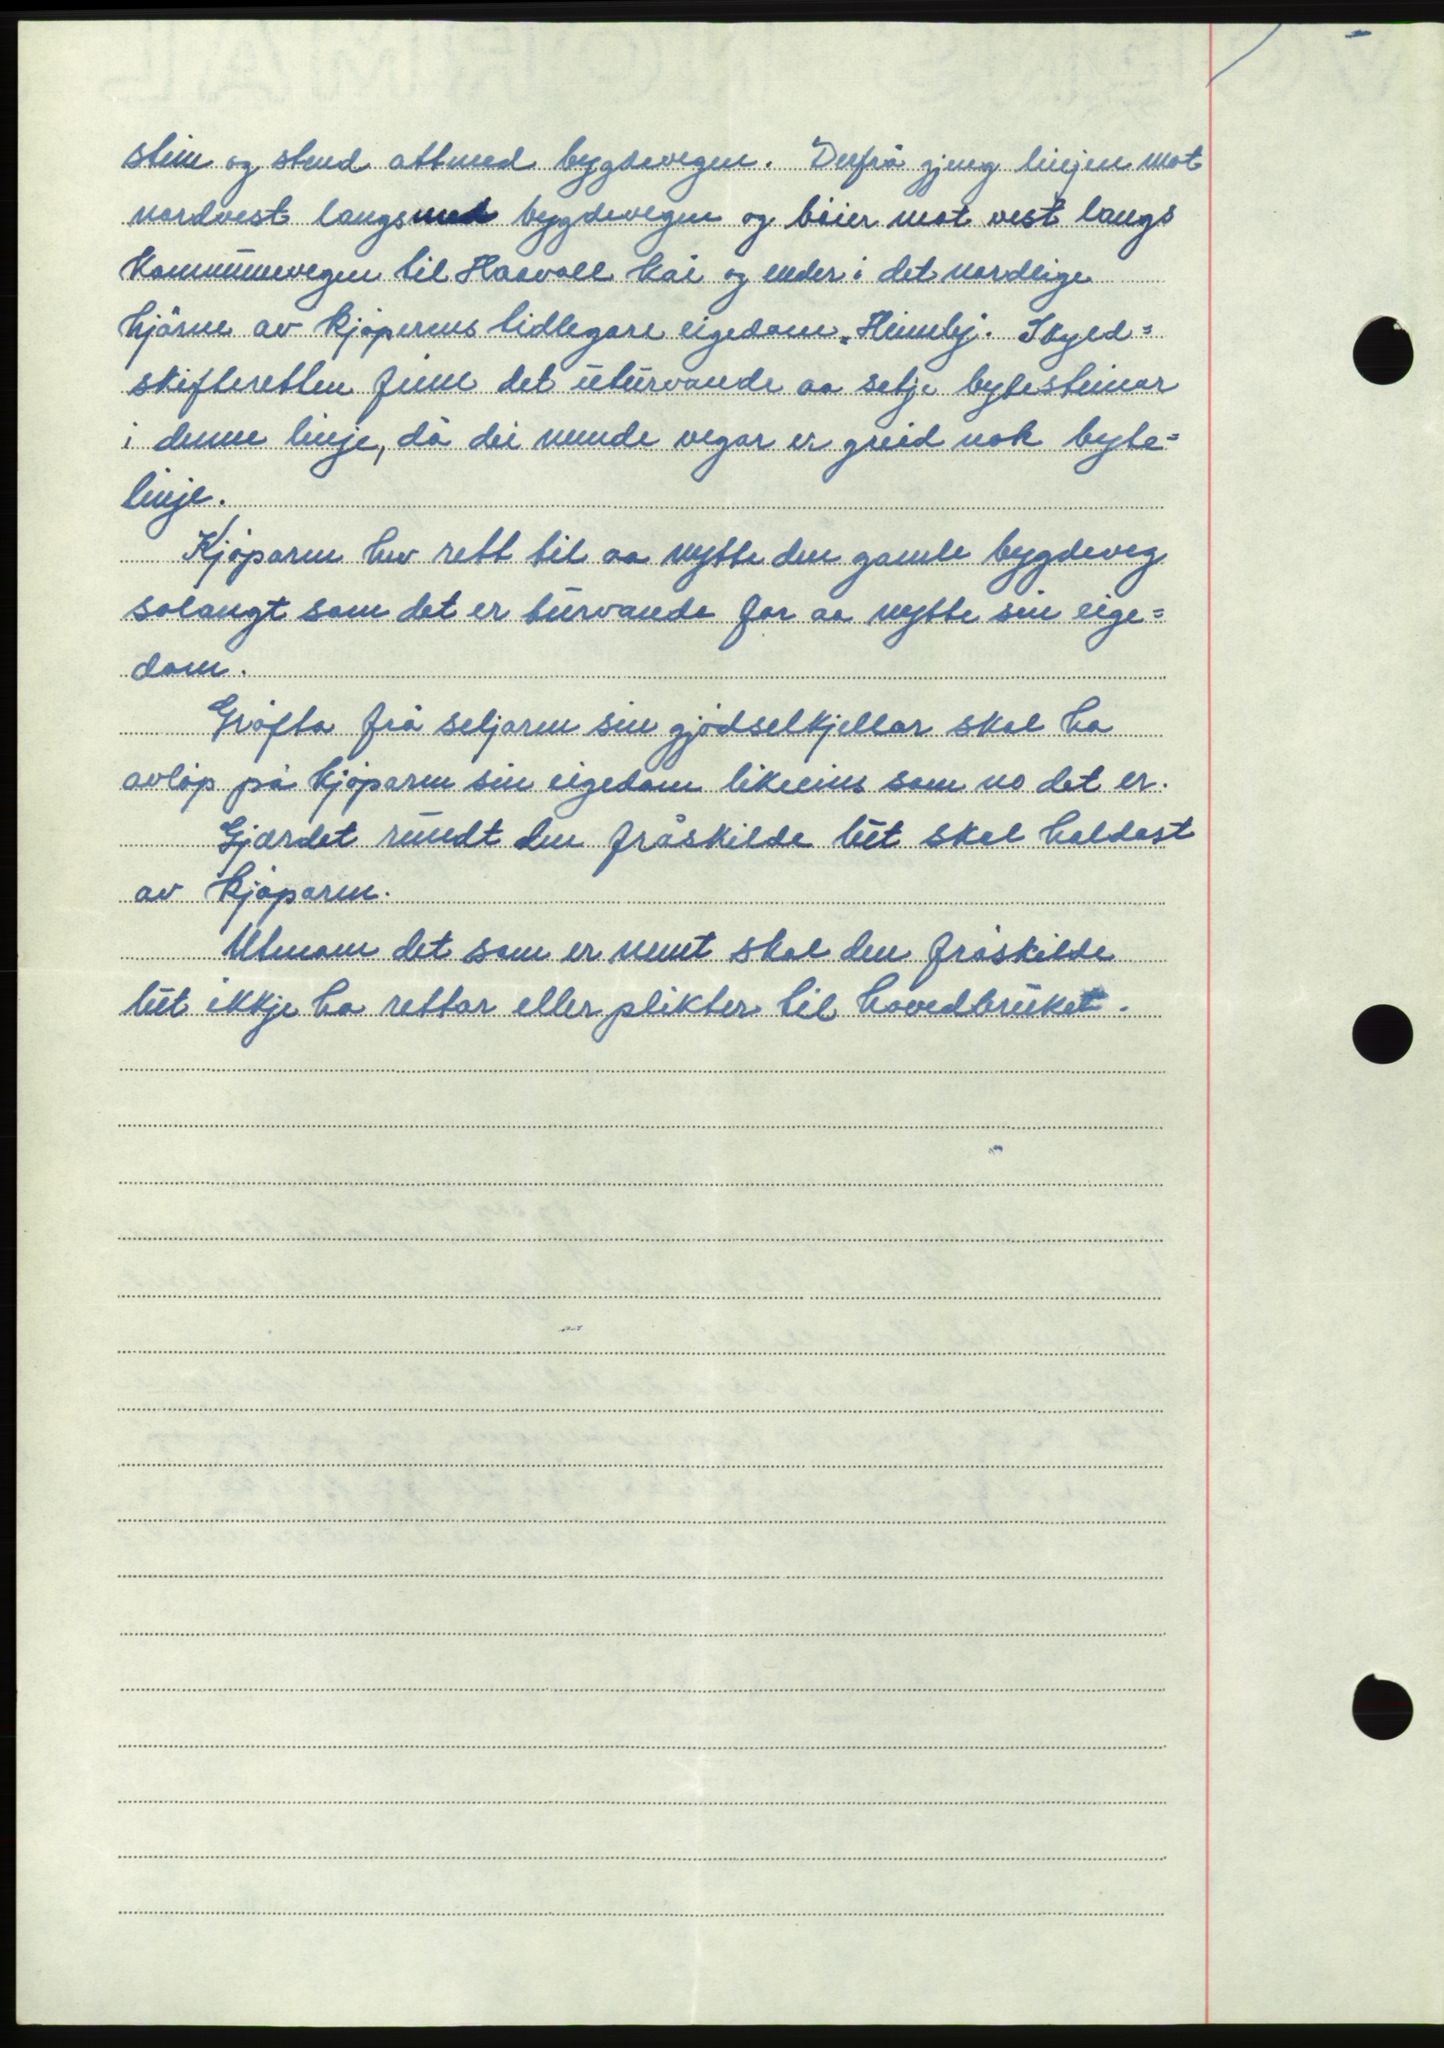 stein og stend attmed bygdevegen. Derfrå gjeng linjen mot
nordvest langsmed bygdevegen og bøier mot vest langs
Kommunevegen til Haavoll kai og ender i det nordlige
hjörne av kjøperens tidlegare eigedom „Heimly". Skyld=
skifteretten finn det uturvande aa setje bytesteinar
i denne linje, då dei nemde vegar er greid nok byte=
linje.
Kjøparen hev rett til aa nytte den gamle bygdeveg
solangt som det er turvande for aa nytte sin eige=
dom.
Grøfta frå seljaren sin gjødselkjellar skal ha
avløp på kjøparen sin eigedom likeeins som no det er.
Gjærdet rundt den fråskilde lut skal haldast
av kjøparen.
Utenom det som er nemt skal den fråskilde
lut ikkje ha rettar eller plikter til hovedbruket.